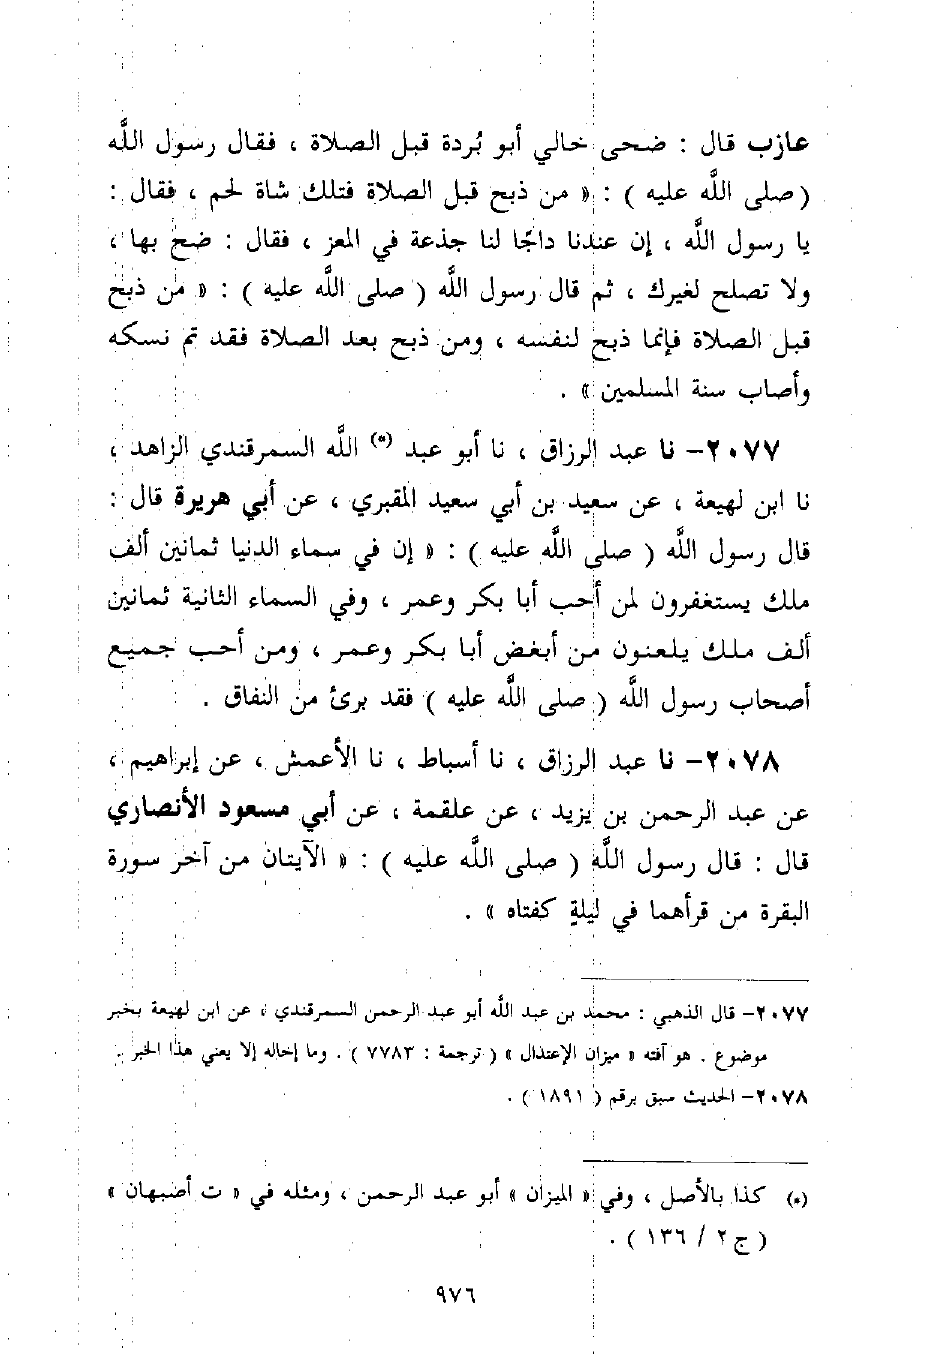 عازب قال : ضحى خالي أبو بُردة قبل الصلاة ، فقال رسول اللَّه
( صلى اللَّه عليه ) : « من ذبح قبل الصلاة فتلك شاة لحم ، فقال :
يا رسول اللَّه ، إن عندنا داجًا لنا جذعة في المعز ، فقال : ضح بها ،
ولا تصلح لغيرك ، ثم قال رسول اللَّه ( صلى اللَّه عليه ) : « من ذبح
قبل الصلاة فإنما ذبح لنفسه ، ومن ذبح بعد الصلاة فقد تم نسكه
وأصاب سنة المسلمين » .
٢٠٧٧- نا عبد الرزاق ، نا أبو عبد (*) اللَّه السمرقندي الزاهد ،
نا ابن لهيعة ، عن سعيد بن أبي سعيد المقبري ، عن أبي هريرة قال :
قال رسول اللَّه ( صلى اللَّه عليه ) : « إن في سماء الدنيا ثمانين ألف
ملك يستغفرون لمن أحب أبا بكر وعمر ، وفي السماء الثانية ثمانين
ألف ملك يلعنون من أبغض أبا بكر وعمر ، ومن أحب جميع
أصحاب رسول اللَّه ( صلى اللَّه عليه ) فقد برئ من النفاق .
٢٠٧٨- نا عبد الرزاق ، نا أسباط ، نا الأعمش ، عن إبراهيم ،
عن عبد الرحمن بن يزيد ، عن علقمة ، عن أبي مسعود الأنصاري
قال : قال رسول اللَّه ( صلى اللَّه عليه ) : « الآيتان من آخر سورة
البقرة من قرأهما في ليلةٍ كفتاه » .
٢٠٧٧- قال الذهبي : محمد بن عبد اللَّه أبو عبد الرحمن السمرقندي ، عن ابن لهيعة بخبر
موضوع . هو آفته « ميزان الإعتدال » ( ترجمة : ٧٧٨٣ ) . وما إخاله إلا يعني هذا الخبر .
٢٠٧٨- الحديث سبق برقم ( ١٨٩١ ) .
(*) كذا بالأصل ، وفي « الميزان » أبو عبد الرحمن ، ومثله في « ت أصبهان »
( ج٢ / ١٣٦ ) .
٩٧٦